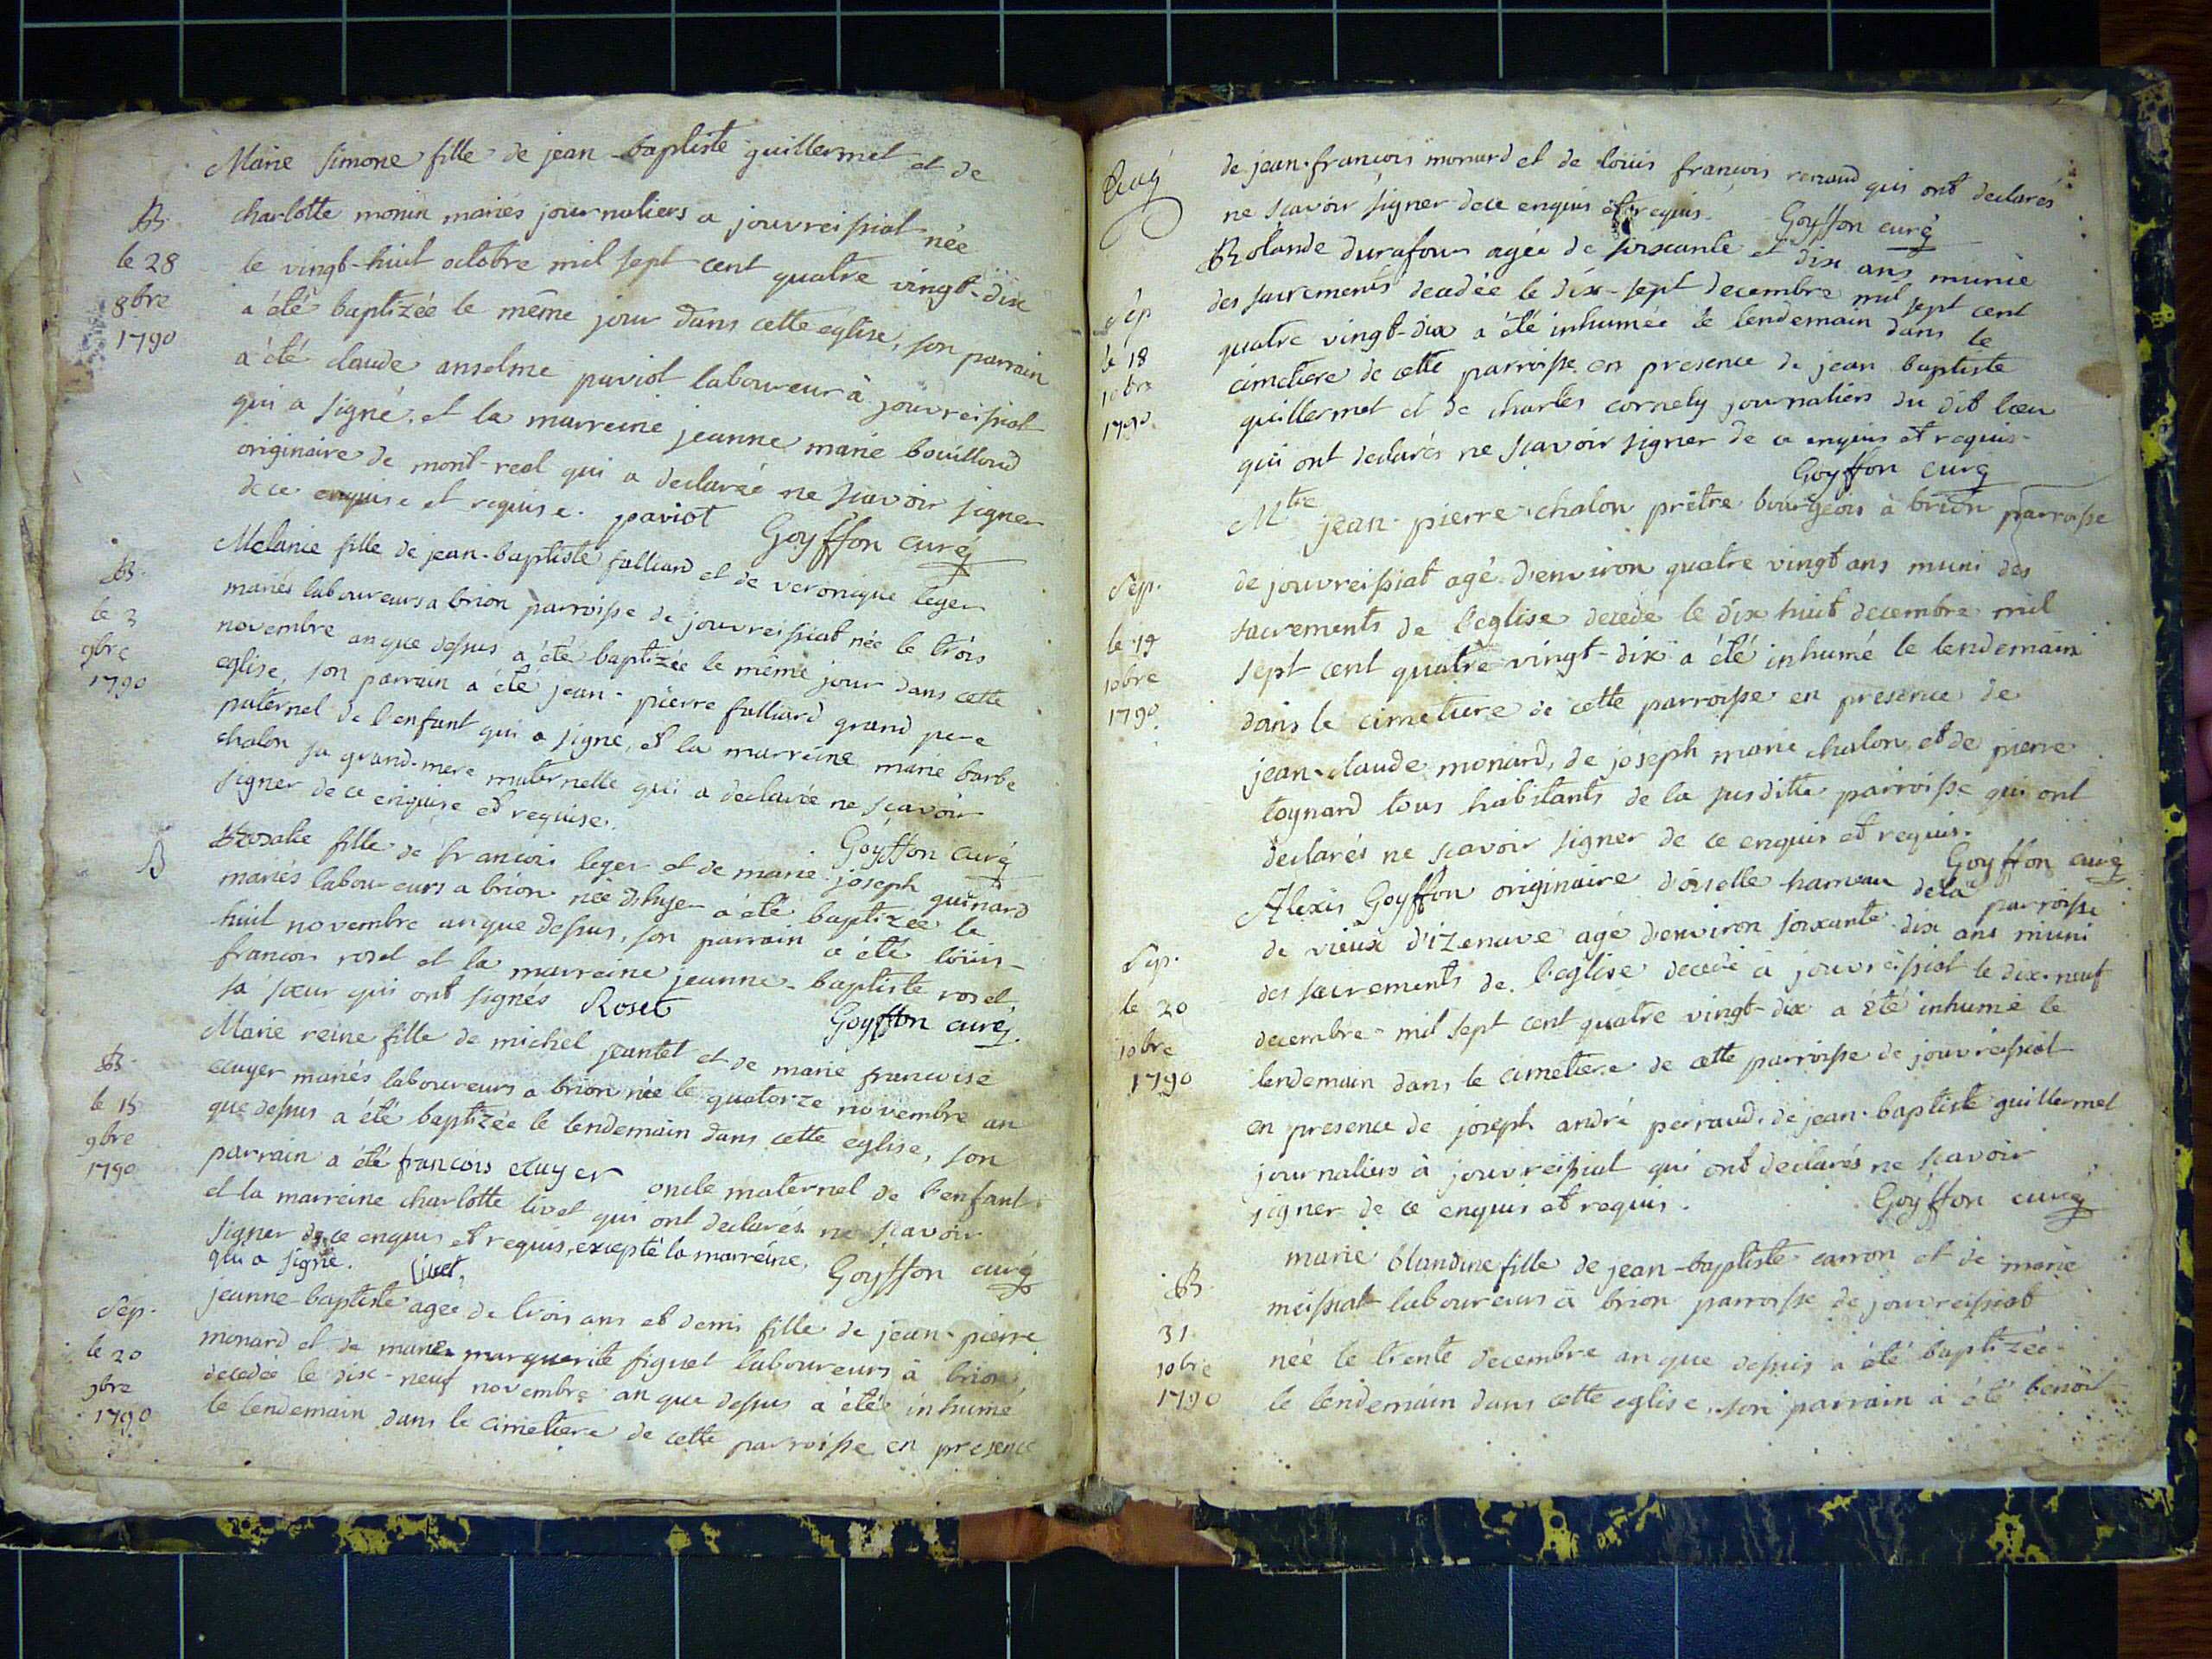 Marie simone fille de jean-baptiste guillermet et de
B.
charlotte monin mariés journaliers a jouvreissiat née
le 28
le vingt-huit octobre mil sept cent quatre vingt-dix
8bre
a été baptizée le même jour dans cette eglise, son parrain
1790
a été claude anselme paviot laboureur à jouvreissiat
qui a signé, et la marreine jeanne marie bouilloud
originaire de mont-real qui a declarée ne scavoir signer
de ce enquise et requise. paviot Goyffon curé
B.
Melanie fille de jean-baptiste falliard et de veronique leger
le 3
mariés laboureurs a brion parroisse de jouvreissiat née le trois
9bre
novembre an que dessus a été baptizée le même jour dans cette
1790
eglise, son parrain a été jean-pierre falliard grand pere
paternel de l'enfant qui a signé, et la marreine marie barbe
chalon sa grand-mere maternelle qui a declarée ne scavoir
signer de ce enquise et requise. Goyffon curé
B
Rosalie fille de francois leger et de marie joseph guinard
mariés laboureurs a brion née a été baptizée le
huit novembre an que dessus, son parrain a été löuis-
francois rosel et la marreine jeanne-baptiste rosel
sa sœur qui ont signés Roset Goyffon curé
B.
Marie reine fille de michel jeantet et de marie francoise
le 15
ecuyer mariés laboureurs a brion née le quatorze novembre an
9bre
que dessus a été baptizée le lendemain dans cette eglise, son
1790
parrain a été francois ecuyer oncle maternel de l'enfant
et la marreine charlotte livet qui ont declarés ne scavoir
signer de ce enquis et requis, excepté la marreine,
qui a signé. livet, Goyffon curé
Sep.
jeanne-baptiste agée de trois ans et demi fille de jean-pierre
le 20
monard et de marie marguerite figuet laboureurs à brion
9bre
decedée le dix-neuf novembre an que dessus a été inhumé
1790
le lendemain dans le cimetiere de cette parroisse en presence
de jean-francois monard et de löuis francois renaud qui ont declarés
ne scavoir signer de ce enquis et requis. Goyffon curé
Sep
Rolande durafour agée de soixante et dix ans munie
le 18
des sacrements decedée le dix-sept decembre mil sept cent
10bre
quatre vingt-dix a été inhumée le lendemain dans le
1790
cimetiere de cette parroisse en presence de jean baptiste
guillermet et de charles cornely journaliers du dit lieu
qui ont declarés ne scavoir signer de ce enquis et requis.
Goyffon curé
Mtre jean-pierre chalon prêtre bourgeois à brion parroisse
Sep.
de jouvreissiat agé d'environ quatre vingt ans muni des
le 19
sacrements de l'eglise decedé le dix huit decembre mil
10bre
sept cent quatre vingt-dix a été inhumé le lendemain
1790
dans le cimetiere de cette parroisse en presence de
jean-claude monard, de joseph marie chalon, et de pierre
toynard tous habitants de la susditte parroisse qui ont
declarés ne scavoir signer de ce enquis et requis.
Goyffon curé
Alexis Goyffon originaire d'oiselle hameau de la parroisse
Sep.
de vieux d'izenave agé d'environ soixante-dix ans muni
le 20
des sacrements de l'eglise decedé à jouvreissiat le dix-neuf
10bre
decembre mil sept cent quatre vingt-dix a été inhumé le
1790
lendemain dans le cimetiere de cette parroisse de jouvreissiat
en presence de joseph andré perraud, de jean-baptiste guillermet
journaliers à jouvreissiat qui ont declarés ne scavoir
signer de ce enquis et requis. Goyffon curé
B.
marie blandine fille de jean-baptiste carron et de marie
31
meissiat laboureurs à brion parroisse de jouvreissiat
10bre
née le trente decembre an que dessus a été baptizée
1790
le lendemain dans cette eglise, son parrain a été benoit